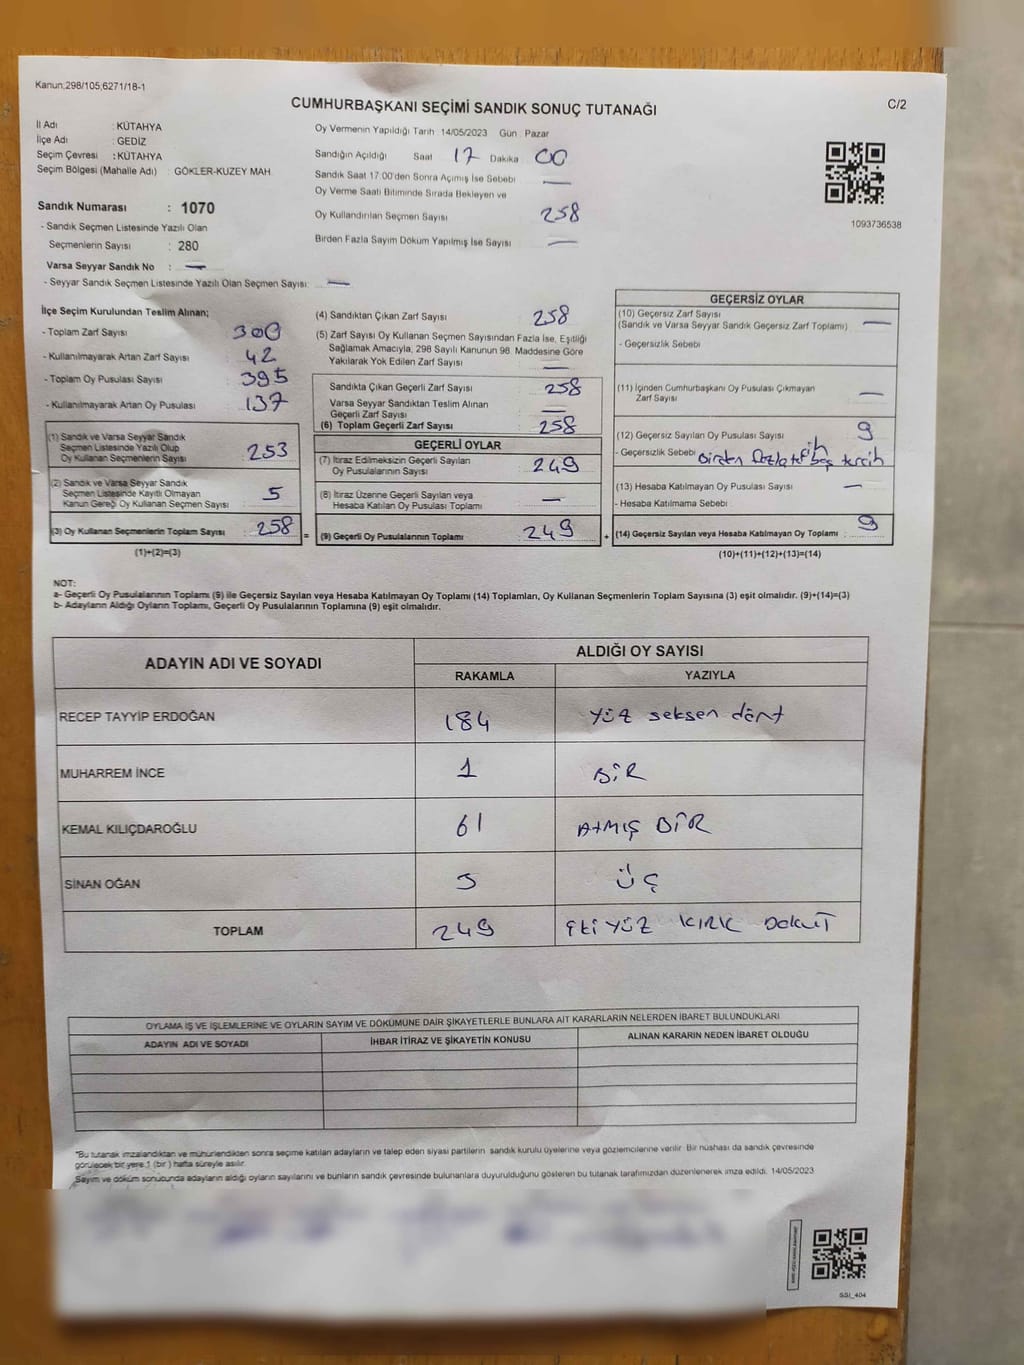 Kanun;298/105;6271/18-1
C/2
CUMHURBAŞKANI SEÇİMİ SANDIK SONUÇ TUTANAĞI
İl Adı : KÜTAHYA
İlçe Adı : GEDİZ
Seçim Çevresi : KÜTAHYA
Seçim Bölgesi (Mahalle Adı) : GÖKLER-KUZEY MAH.
Sandık Numarası : 1070
- Sandık Seçmen Listesinde Yazılı Olan
Seçmenlerin Sayısı : 280
Varsa Seyyar Sandık No : —
- Seyyar Sandık Seçmen Listesinde Yazılı Olan Seçmen Sayısı: —
Oy Vermenin Yapıldığı Tarih 14/05/2023 Gün : Pazar
Sandığın Açıldığı Saat 17 Dakika 00
Sandık Saat 17:00'den Sonra Açımış İse Sebebi —
Oy Verme Saati Bitiminde Sırada Bekleyen ve
Oy Kullandırılan Seçmen Sayısı 258
Birden Fazla Sayım Döküm Yapılmış İse Sayısı —
1093736538
İlçe Seçim Kurulundan Teslim Alınan;
- Toplam Zarf Sayısı 300
- Kullanılmayarak Artan Zarf Sayısı 42
- Toplam Oy Pusulası Sayısı 395
- Kullanılmayarak Artan Oy Pusulası 137
(1) Sandık ve Varsa Seyyar Sandık
Seçmen Listesinde Yazılı Olup
Oy Kullanan Seçmenlerin Sayısı 253
(2) Sandık ve Varsa Seyyar Sandık
Seçmen Listesinde Kayıtlı Olmayan
Kanun Gereği Oy Kullanan Seçmen Sayısı 5
(3) Oy Kullanan Seçmenlerin Toplam Sayısı : 258 =
(1)+(2)=(3)
(4) Sandıktan Çıkan Zarf Sayısı 258
(5) Zarf Sayısı Oy Kullanan Seçmen Sayısından Fazla İse, Eşitliği
Sağlamak Amacıyla, 298 Sayılı Kanunun 98. Maddesine Göre
Yakılarak Yok Edilen Zarf Sayısı —
Sandıkta Çıkan Geçerli Zarf Sayısı 258
Varsa Seyyar Sandıktan Teslim Alınan
Geçerli Zarf Sayısı —
(6) Toplam Geçerli Zarf Sayısı 258
GEÇERLİ OYLAR
(7) İtiraz Edilmeksizin Geçerli Sayılan
Oy Pusulalarının Sayısı 249
(8) İtiraz Üzerine Geçerli Sayılan veya
Hesaba Katılan Oy Pusulası Toplamı —
(9) Geçerli Oy Pusulalarının Toplamı 249 +
GEÇERSİZ OYLAR
(10) Geçersiz Zarf Sayısı
(Sandık ve Varsa Seyyar Sandık Geçersiz Zarf Toplamı) —
- Geçersizlik Sebebi
(11) İçinden Cumhurbaşkanı Oy Pusulası Çıkmayan
Zarf Sayısı —
(12) Geçersiz Sayılan Oy Pusulası Sayısı 9
- Geçersizlik Sebebi Birden fazla tercih
(13) Hesaba Katılmayan Oy Pusulası Sayısı —
- Hesaba Katılmama Sebebi
(14) Geçersiz Sayılan veya Hesaba Katılmayan Oy Toplamı : 9
(10)+(11)+(12)+(13)=(14)
NOT:
a- Geçerli Oy Pusulalarının Toplamı (9) ile Geçersiz Sayılan veya Hesaba Katılmayan Oy Toplamı (14) Toplamları, Oy Kullanan Seçmenlerin Toplam Sayısına (3) eşit olmalıdır. (9)+(14)=(3)
b- Adayların Aldığı Oyların Toplamı, Geçerli Oy Pusulalarının Toplamına (9) eşit olmalıdır.
ADAYIN ADI VE SOYADI ALDIĞI OY SAYISI
RAKAMLA YAZIYLA
RECEP TAYYİP ERDOĞAN 184 yüz seksen dört
MUHARREM İNCE 1 BİR
KEMAL KILIÇDAROĞLU 61 ATMIŞ BİR
SİNAN OĞAN 3 ÜÇ
TOPLAM 249 İKİ YÜZ KIRK DOKUZ
OYLAMA İŞ VE İŞLEMLERİNE VE OYLARIN SAYIM VE DÖKÜMÜNE DAİR ŞİKAYETLERLE BUNLARA AİT KARARLARIN NELERDEN İBARET BULUNDUKLARI
ADAYIN ADI VE SOYADI İHBAR İTİRAZ VE ŞİKAYETİN KONUSU ALINAN KARARIN NEDEN İBARET OLDUĞU
*Bu tutanak imzalandıktan ve mühürlendikten sonra seçime katılan adayların ve talep eden siyasi partilerin sandık kurulu üyelerine veya gözlemcilerine verilir. Bir nüshası da sandık çevresinde
görülecek bir yere 1 (bir ) hafta süreyle asılır.
Sayım ve döküm sonucunda adayların aldığı oyların sayılarını ve bunların sandık çevresinde bulunanlara duyurulduğunu gösteren bu tutanak tarafımızdan düzenlenerek imza edildi. 14/05/2023
SSI_404